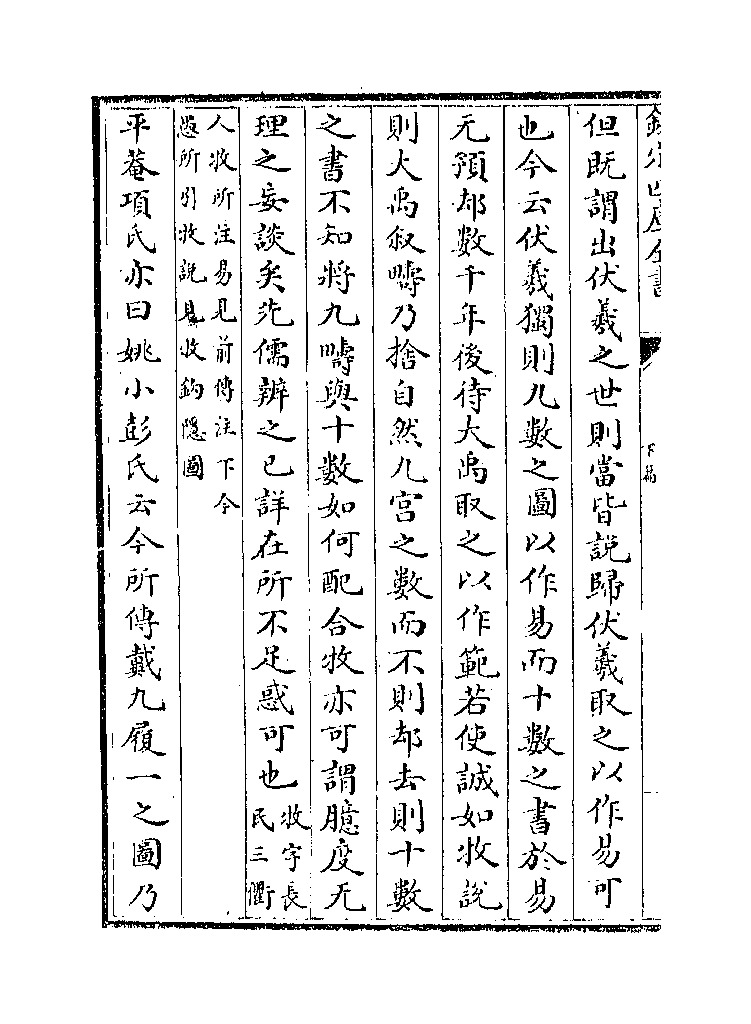 欽定四庫全書
下篇
但既謂出伏羲之世則當皆說歸伏羲取之以作易可
也今云伏羲獨則九數之圖以作易而十數之書於易
无預却數千年後待大禹取之以作範若使誠如牧說
則大禹叙疇乃捨自然九宫之數而不則却去則十數
之書不知將九疇與十數如何配合牧亦可謂臆度无
理之妄談矣先儒辨之已詳在所不足惑可也
牧字長
民三衢
人牧所注易見前傳注下今
愚所引牧說見牧鈎隱圖
平菴項氏亦曰姚小彭氏云今所傳戴九履一之圖乃